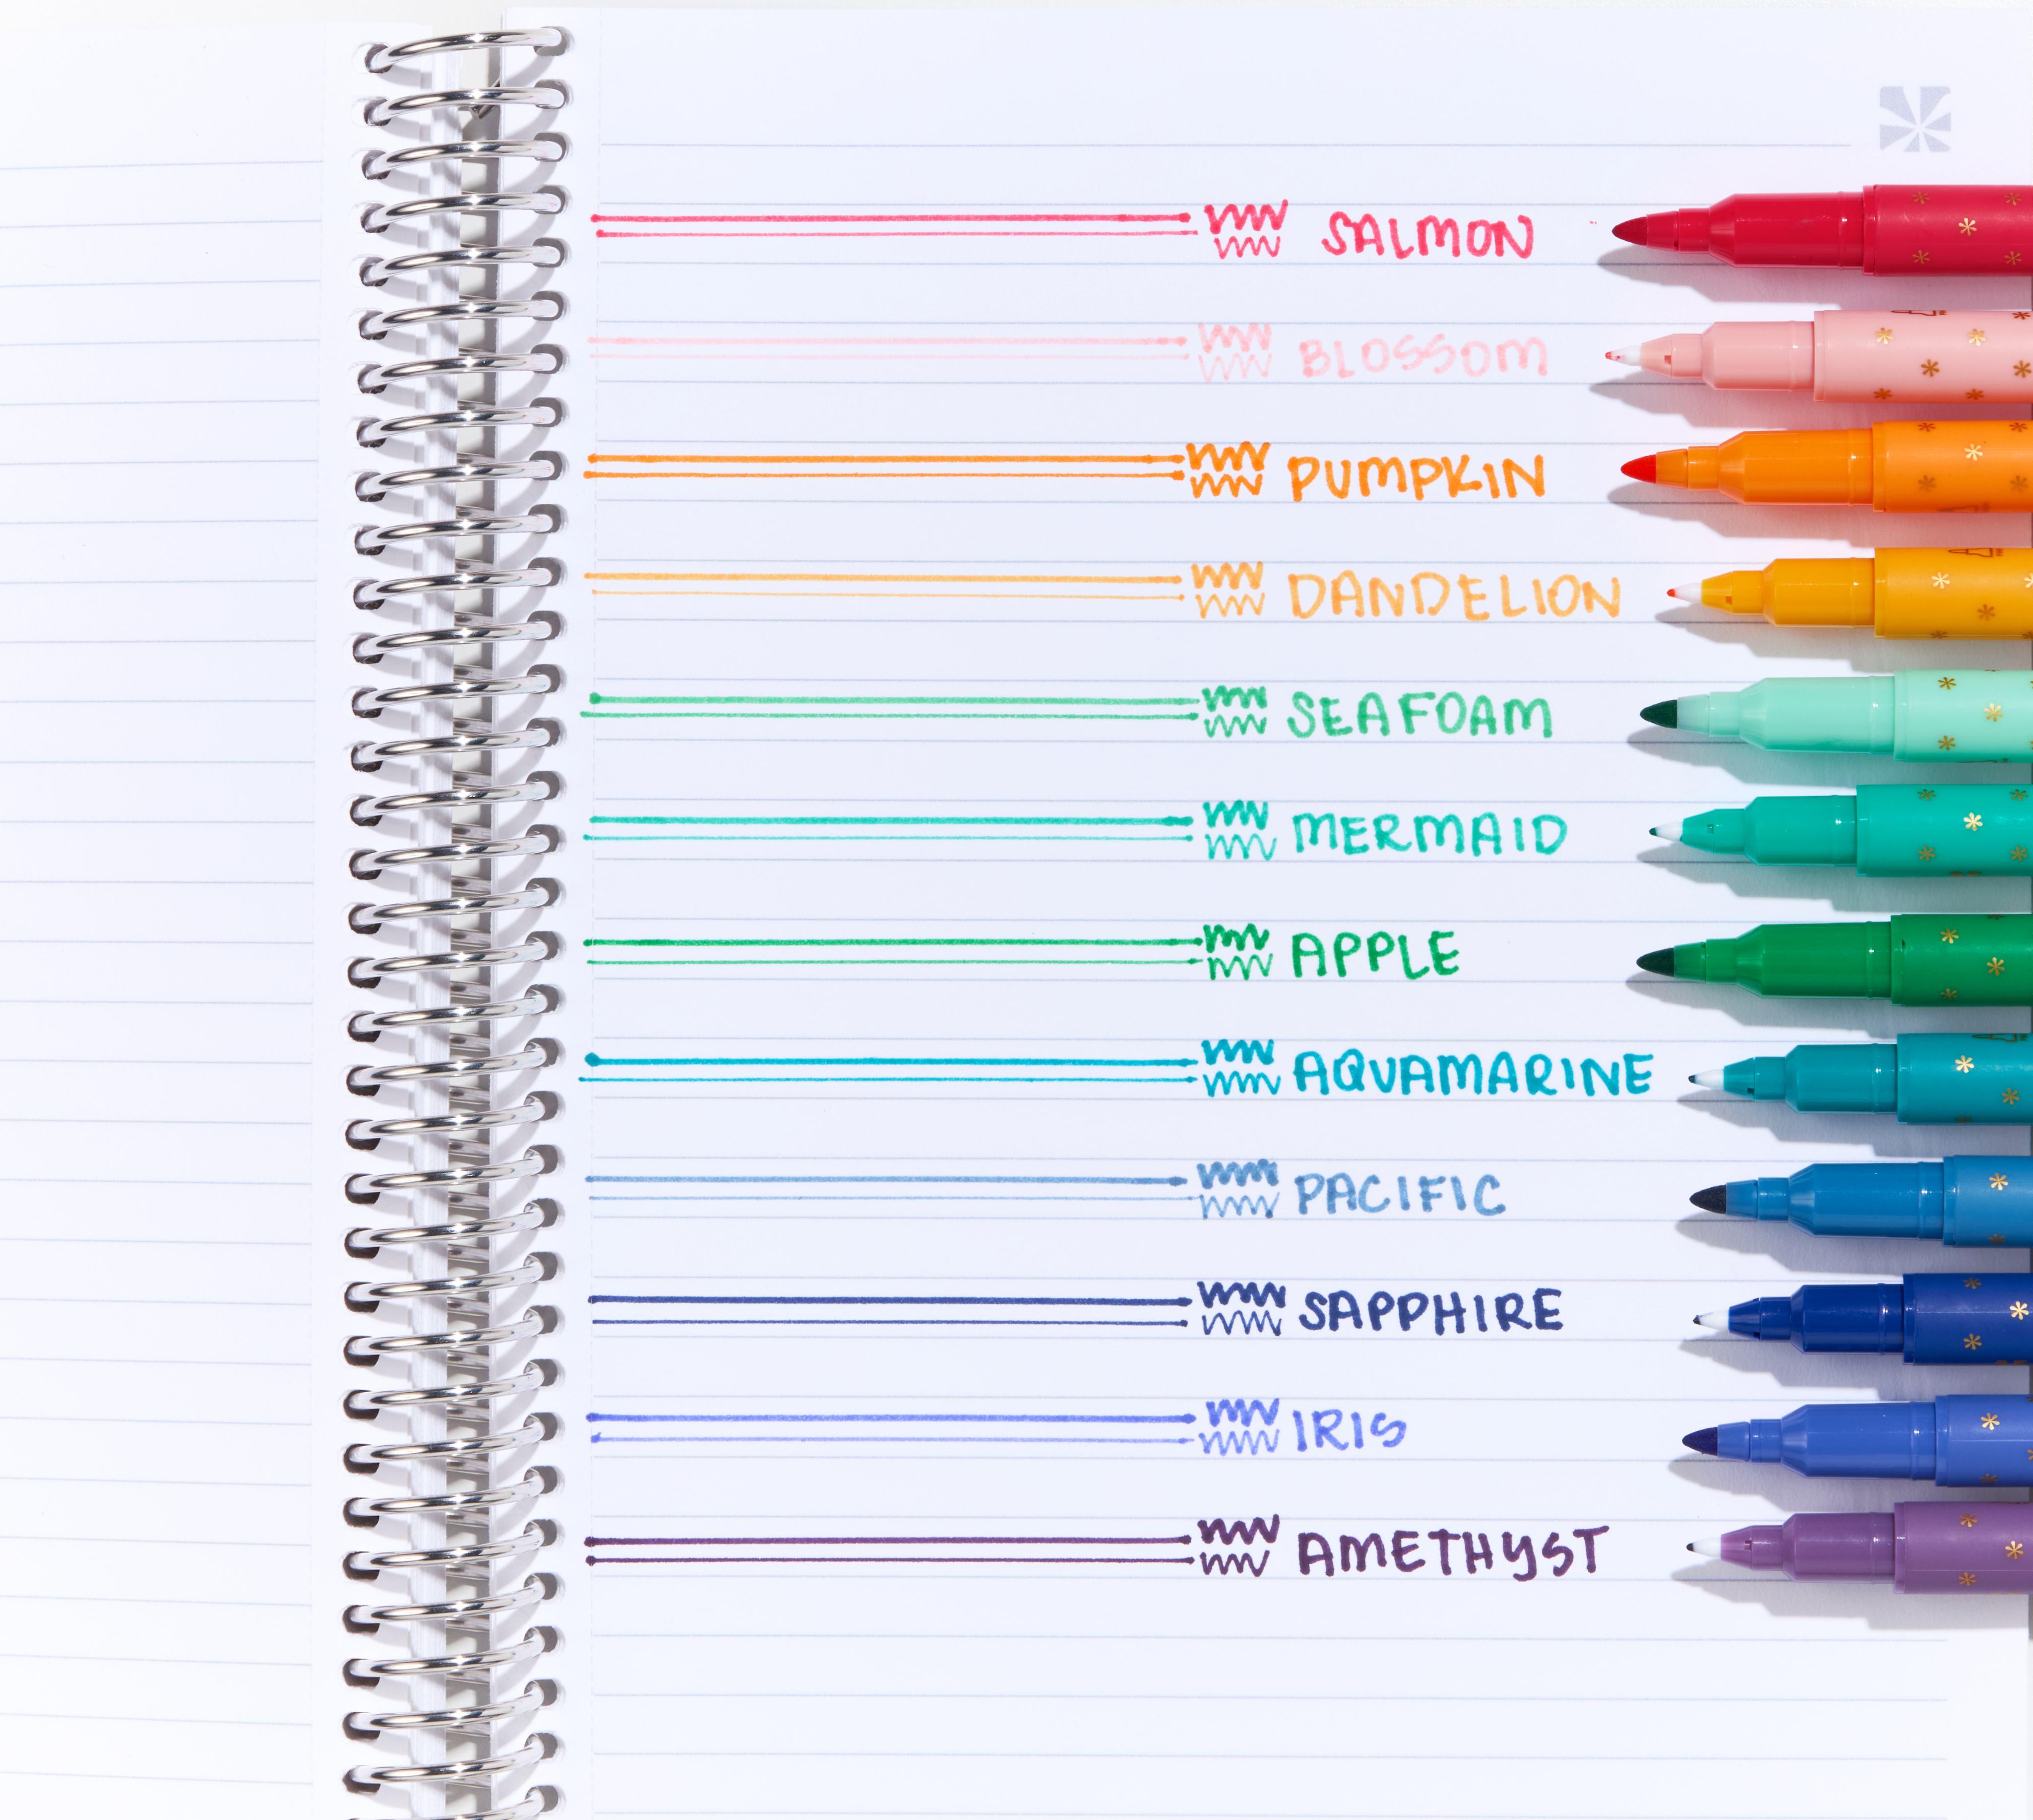 SALMON
BLOSSOM
PUMPKIN
DANDELION
SEAFOAM
MERMAID
APPLE
AQUAMARINE
PACIFIC
SAPPHIRE
IRIS
AMETHYST